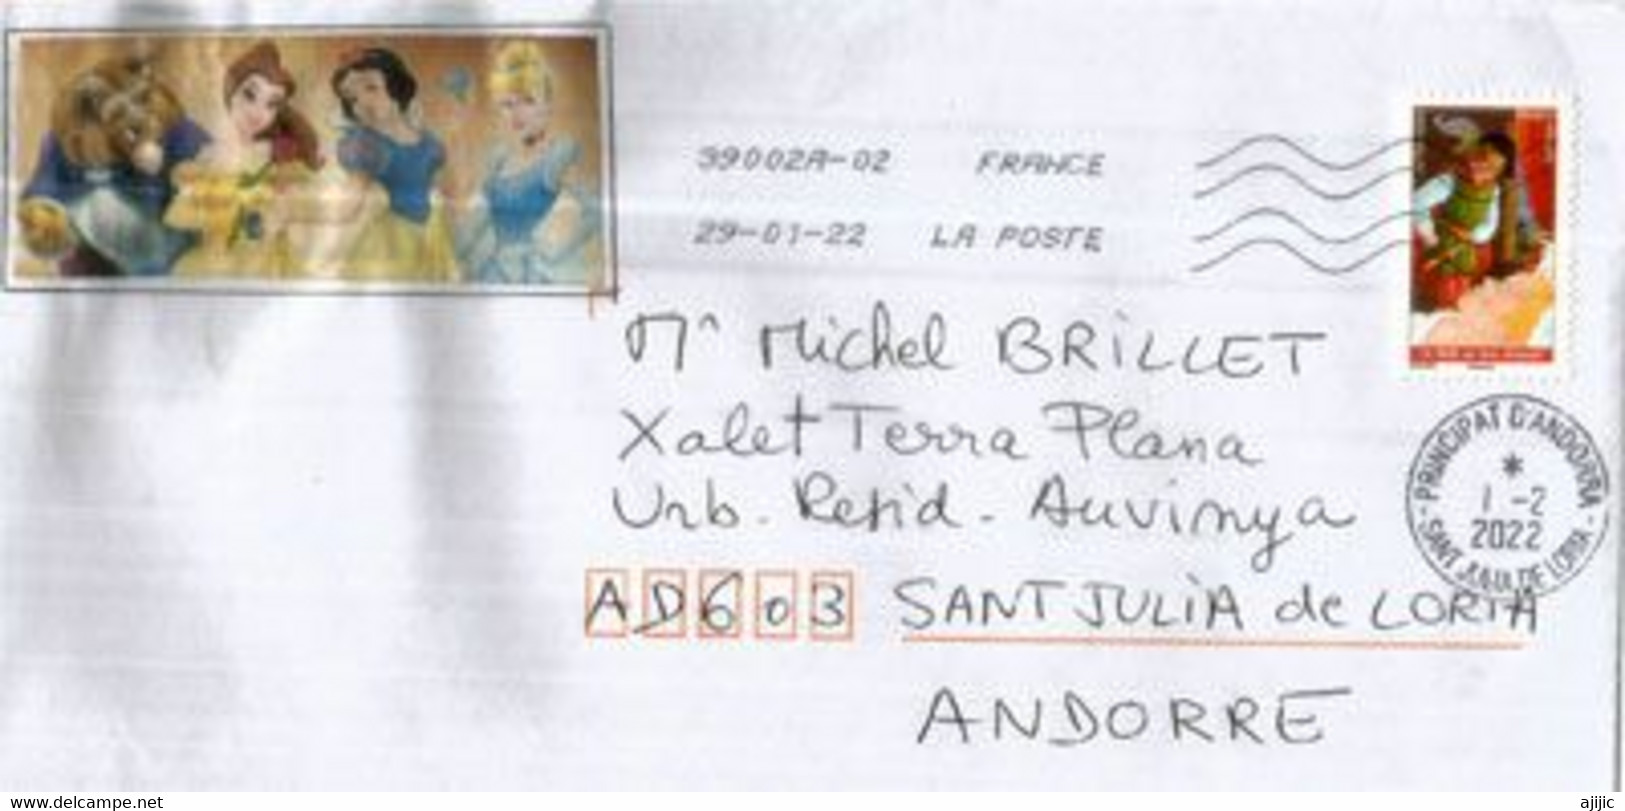 39002A-02 FRANCE
29-01-22 LA POSTE
Mr Michel BRILLET
Xalet Terra Plana
Urb. Resid. Auvinya
AD603 SANT JULIA de LORIA
ANDORRE
PRINCIPAT D'ANDORRA
*
1 -2
2022
- SANT JULIA DE LORIA -
www.delcampe.net
ajijic